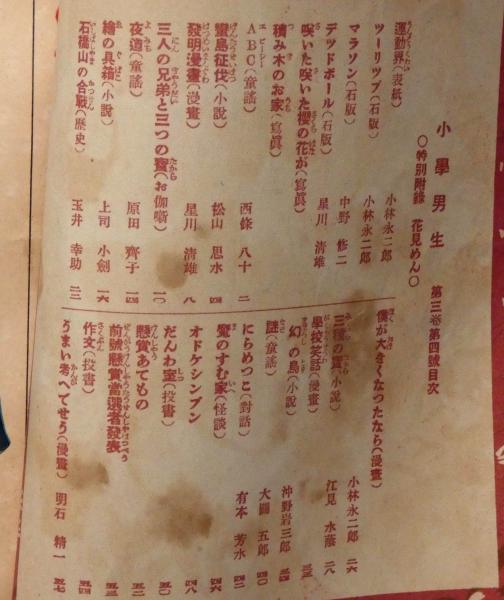 小學男生 第三卷第四號目次
〇特別附錄 花見めん〇
運動界(表紙) 小林永二郎
ツーリツプ(石版) 小林永二郎
マラソン(石版) 中野修二
デツドボール(石版) 星川清雄
咲いた咲いた櫻の花が(寫眞)
積み木のお家(寫眞)
ABC(童謡) 西條八十 二
蠻島征伐(小説) 松山思水 四
發明漫畫(漫畫) 星川清雄 八
三人の兄弟と三つの寶(お伽噺) 一〇
夜道(童謡) 原田齊子 一四
繪の具箱(小説) 上司小劍 一六
石橋山の合戰(歴史) 玉井幸助 二三
僕が大きくなつたなら(漫畫) 小林永二郎 二六
三種の寶(小説) 江見水蔭 二八
學校笑話(漫畫)
幻の島(小説) 沖野岩三郎
謎(童謡) 大關五郎 四〇
にらめつこ(對話) 有本芳水 四二
魔のすむ家(怪談) 四六
オドケシンブン 四八
だんわ室(投書) 五〇
懸賞あてもの 五二
前號懸賞當選者發表 五三
作文(投書) 五四
うまい考へでせう(漫畫) 明石精一 五七